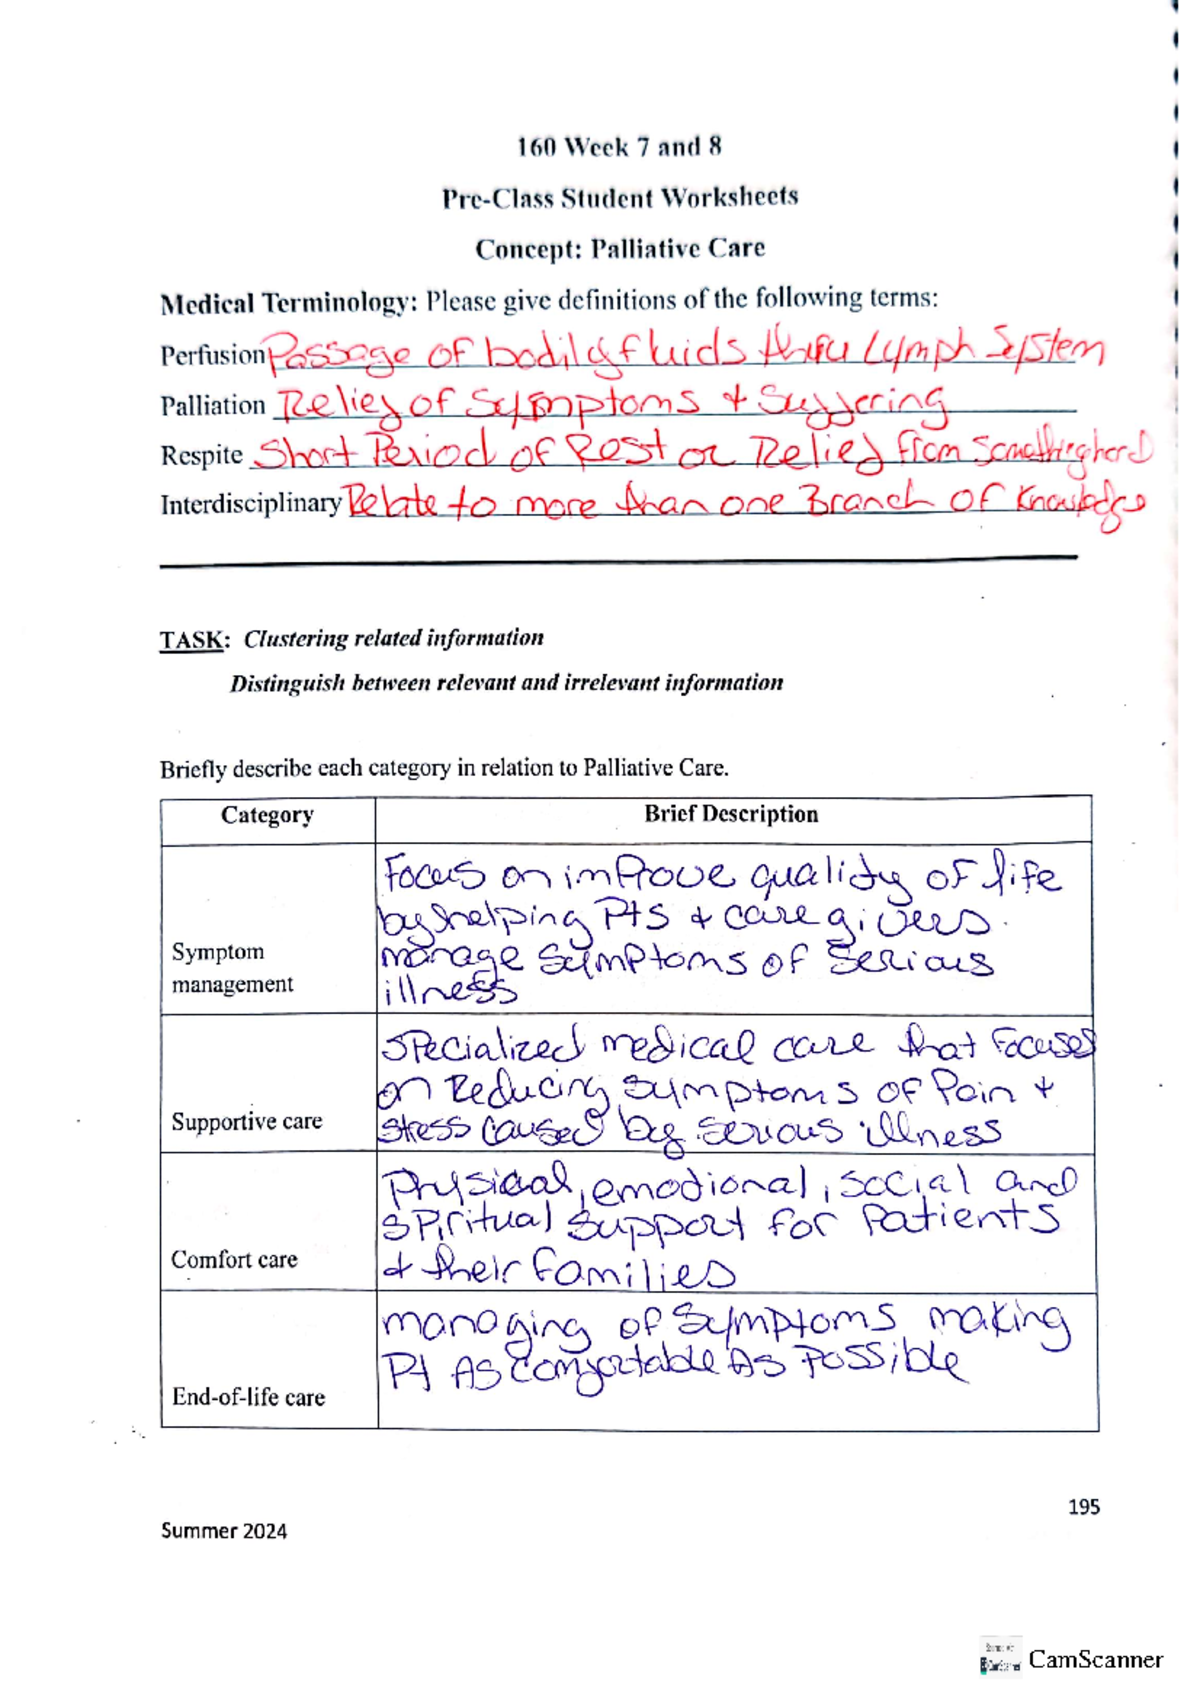 160 Week 7 and 8
Pre-Class Student Worksheets
Concept: Palliative Care
Medical Terminology: Please give definitions of the following terms:
Perfusion Passage of bodily fluids thru Lymph System
Palliation Relief of Symptoms + Suffering
Respite Short Period of Rest or Relief from Something hard
Interdisciplinary Relate to more than one Branch of Knowledge
TASK: Clustering related information
Distinguish between relevant and irrelevant information
Briefly describe each category in relation to Palliative Care.
Category Brief Description
Symptom management
Focus on improve quality of life
by helping Pts + care givers.
manage Symptoms of Serious
illness
Supportive care
Specialized medical care that Focuses
on Reducing symptoms of Pain +
stress caused by serious illness
Comfort care
Physical, emotional, social and
spiritual support for Patients
& their families
End-of-life care
managing of Symptoms making
Pt As comfortable As Possible
195
Summer 2024
CamScanner